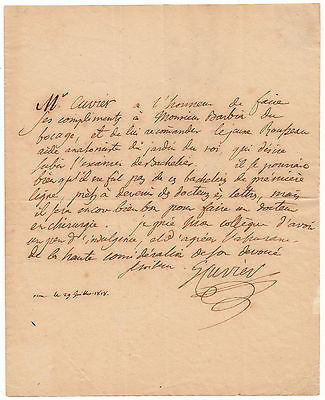 Mr Cuvier a l'honneur de faire
ses compliments à Monsieur Barbié du
bocage, et de lui recomander le jeune Rousseau
aide anatomiste du jardin du roi qui désire
subir l'examen de Bachelier. il se pourrait
bien qu'il ne fut pas de ces bacheliers de première
ligne, prêts à devenir des docteurs ès lettres, mais
il sera encor bien bon pour faire un docteur
en chirurgie. je prie mon collègue d'avoir
un peu d'indulgence, et d'agréer l'assurance
de la haute considération de son dévoué
serviteur
G Cuvier
ce 29 juillet 1818.